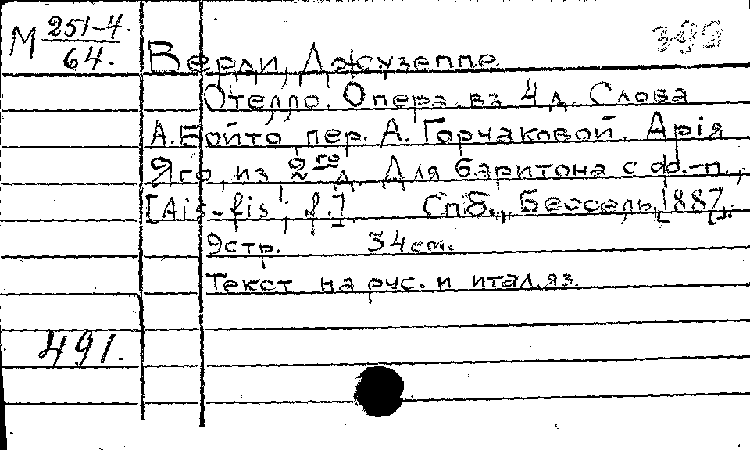 М 251-4.
64.
399
Верди, Джузеппе.
Отелло. Опера вз 4 д. Слова
А. Бойто, пер. А. Горчаковой. Арiя
Яго, из 2го д. Для баритона с ф.-п.,
[Ais-fis'; f.]. Спб., Бессель, [1887].
9 стр. 34 cm.
Текст на рус. и итал. яз.
491.